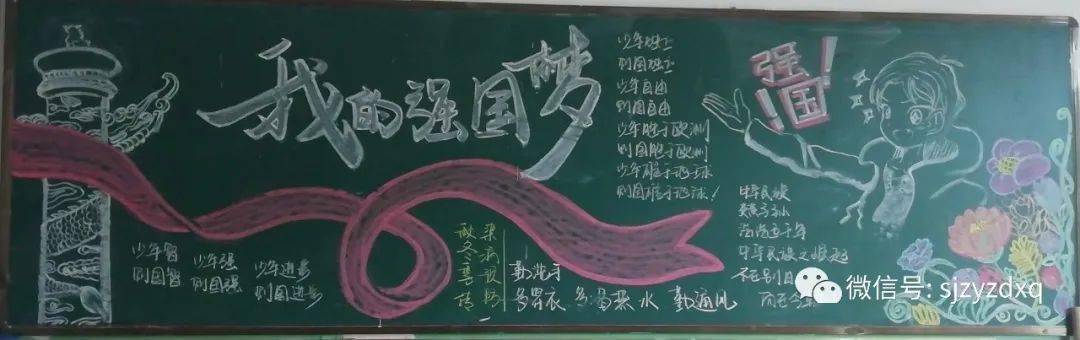 我的强国梦
强国!
少年独立
则国独立
少年自由
则国自由
少年胜于欧洲
则国胜于欧洲
少年雄于地球
则国雄于地球!
少年智
则国智
少年强
则国强
少年进步
则国进步
秋冬季传
染病预防
勤洗手
多晒衣 多喝 水 勤通风
中华民族
炎黄子孙
五千年
中华民族之崛起
不在别日
而在今
微信号: sjzyzdxq